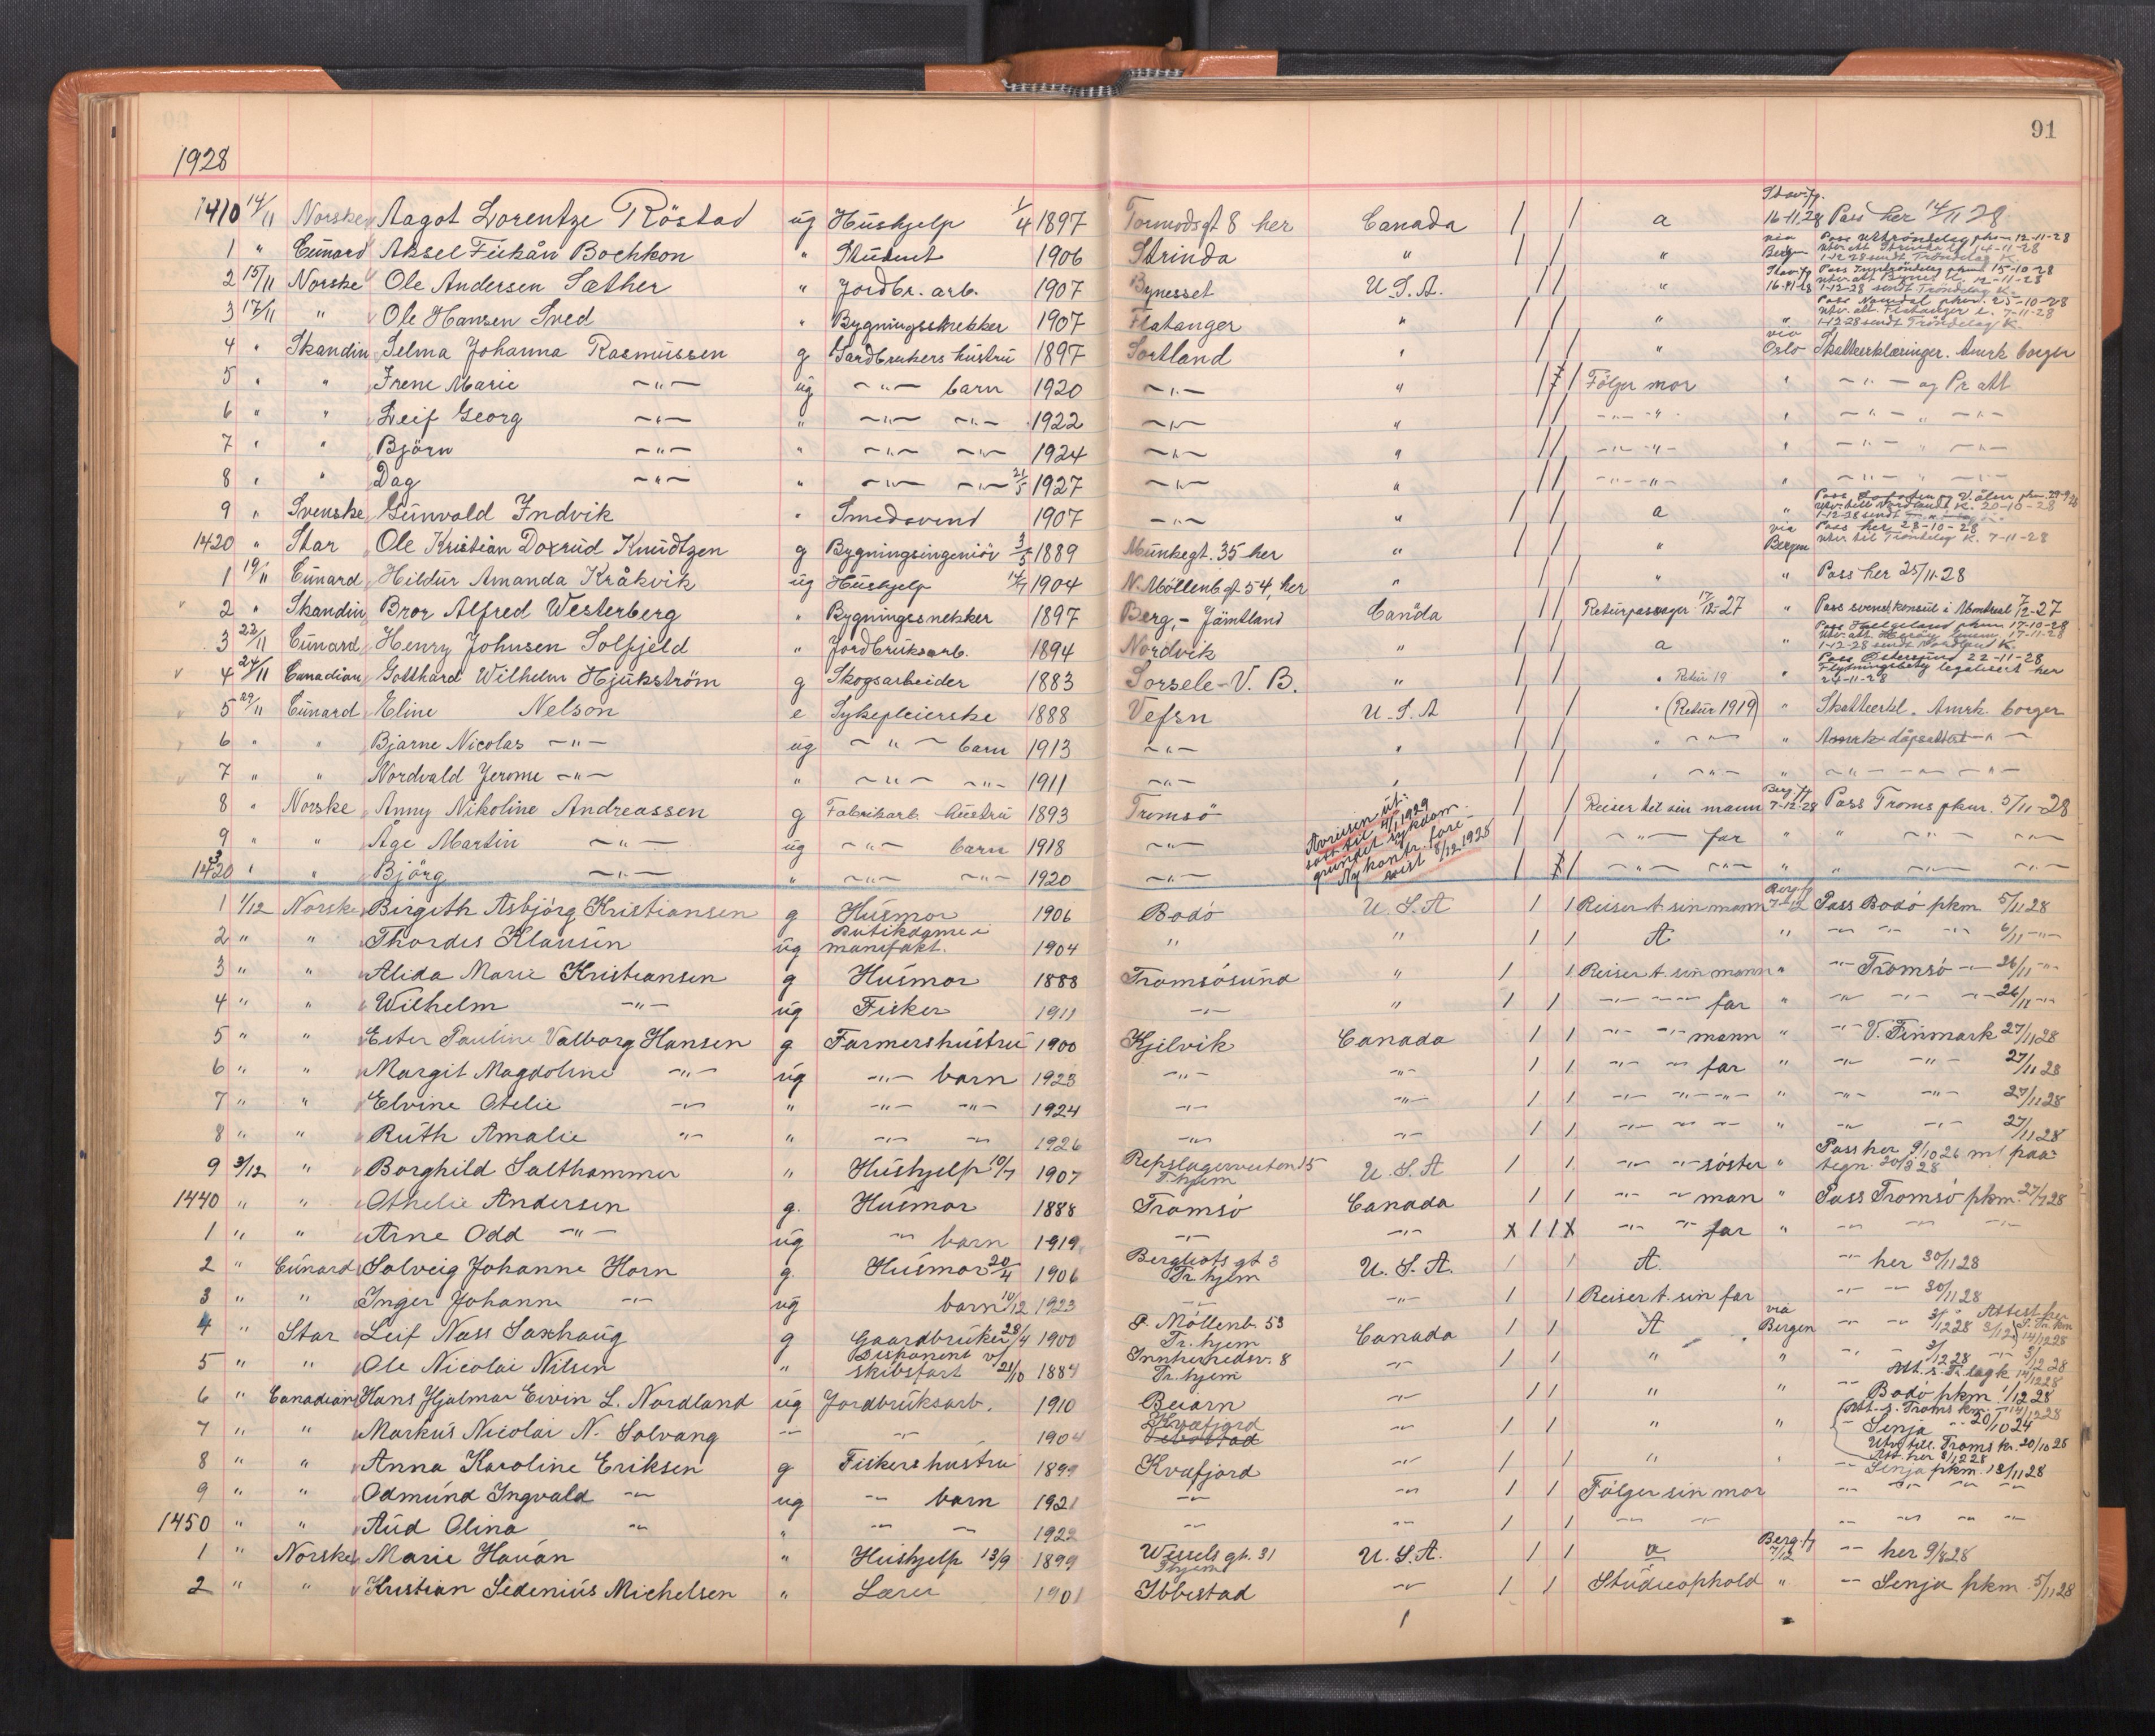 91
1928
1410 14/11 Norske Aagot Lorentze Röstad ug Hushjelp 1/4 1897 Tormodsgt 8 her Canada / / a Stav.fj. 16-11.28 Pass her 14/11 28
1 " Cunard Aksel Fukån Bochkon " Student 1906 Strinda " / / " via Bergen Pass Uttröndelag pkm 12-11-28
1-12-28 sendt Tröndelag K.
2 15/11 Norske Ole Andersen Sæther " Jordbr. arb. 1907 Bynesset U.S.A. / / " Stav.fj 16-11-28 15-10-28
1-12-28 sendt Tröndelag K.
3 17/11 " Ole Hansen Sved " Bygningssnekker 1907 Flatanger " / / " " Pass Namdal pkm. 25-10-28
Utv. att. Flatanger l. 7-11-28
1-12-28 sendt Tröndelag K.
4 " Skandin Selma Johanna Rasmussen g Gardbrukers hustru 1897 Sortland " / / " via Oslo Skatteerklæringer. Amrk borger
5 " " Irene Marie -"- ug -"- barn 1920 -"- " / / Fölger mor " -"- og Pr att
6 " " Leif Georg -"- " -"- -"- 1922 -"- " / / -"- -"- " -"- " -"-
7 " " Björn -"- " -"- -"- 1924 -"- " / / -"- -"- " -"- " -"-
8 " " Dag -"- " -"- -"- 21/5 1927 -"- " / / -"- -"- " -"- " -"-
9 " Svenske Gunvald Indvik " Smedsvend 1907 -"- " / / a " Pass Lofoten og V.ålen pkm. 29-9-28
Utv. till Nordland K. 20-10-28
1-12-28 sendt
1420 " Star Ole Kristian Doxrud Knudtzen g Bygningsingeniör 3/5 1889 Munkegt. 35 her " / / " via Bergen Pass her 28-10-28
Utv. til Tröndelag K. 7-11-28
1 19/11 Cunard Hildur Amanda Kråkvik ug Hushjelp 1904 N. Möllenb.gt 54, her " / / " " Pass her 25/11-28
2 " Skandin Bror Alfred Westerberg " Bygningssnekker 1897 Berg, - Jämtland Canada / / Returpassager 17/12-27 " Pass svensk konsul i Montreal 7/12-27
3 22/11 Cunard Henry Johnsen Solfjeld " Jordbruksarb. 1894 Nordvik " / / a " Pass Helgeland pkm 17-10-28
Utv. att. Heröy 17-11-28
1-12-28 sendt Nordland K.
4 24/11 Canadian Gotthard Wilhelm Hjukström g Skogsarbeider 1883 Sorsele - V. B. " / / " Retur 19 " Pass Östersund 22-11-28
Flytningsbety legalisert her
24-11-28
5 29/11 Cunard Eline Nelson e Sykepleierske 1888 Vefsn U.S.A / / " (Retur 1919) " Skatteerkl. Amrk. borger
6 " " Bjarne Nicolas -"- ug -"- barn 1913 -"- " / / " -"- " Amrk dåpsattest -"-
7 " " Nordvald Jerome -"- " -"- -"- 1911 -"- " / / " -"- " -"- -"- -"-
8 " Norske Anny Nikoline Andreassen g Fabrikarb hustru 1893 Tromsö / / Reiser til sin mann Berg.fj. 7-12-28 Pass Troms pkm. 5/11-28
Avreisen ut-
satt til 4/1 1929
grundet sykdom.
Ny kontr. fore-
vist 18/12 1928
9 " " Åge Martin -"- ug -"- barn 1918 -"- / / -"- far " " -"- -"-
1430 " " Björg -"- " -"- -"- 1920 -"- / / -"- -"- " " -"- -"-
1 1/12 Norske Birgith Asbjörg Kristiansen g Husmor 1906 Bodö U.S.A / / Reiser t. sin mann Berg.fj. 7-12 Pass Bodö pkm 5/11 28
2 " " Thordis Klausen ug Butikdame i manufakt. 1904 " " / / A " -"- -"- -"- 6/11 -"-
3 " " Alida Marie Kristiansen g Husmor 1888 Tromsösund " / / Reiser t. sin mann " -"- Tromsö -"- 26/11 -"-
4 " " Wilhelm -"- ug Fisker 1911 -"- " / / -"- -"- far " -"- -"- -"- 26/11 -"-
5 " " Ester Pauline Valborg Hansen g Farmershustru 1900 Kjelvik Canada / / -"- -"- mann " -"- V. Finmark 27/11 28
6 " " Margit Magdoline -"- ug -"- barn 1923 -"- -"- / / -"- -"- far " -"- -"- 27/11 28
7 " " Elvine Otelie -"- " -"- -"- 1924 -"- -"- / / -"- -"- -"- " -"- -"- 27/11 28
8 " " Ruth Amalie -"- " -"- -"- 1926 -"- -"- / / -"- -"- -"- " -"- -"- 27/11 28
9 3/12 " Borghild Salthammer " Hushjelp 10/7 1907 Repslagerveiten 15 Tr.hjem U.S.A / / -"- -"- söster " Pass her 9/10 26 m/ paa-
tegn. 20/8 28
1440 " " Othelie Andersen g. Husmor 1888 Tromsö Canada / / -"- -"- man " Pass Tromsö pkm. 27/7 28
1 " " Arne Odd -"- ug -"- barn 1919 -"- -"- X / / X -"- -"- far " -"- -"- -"-
2 " Cunard Solveig Johanne Horn g. Husmor 20/4 1906 Bergliots gt 3 Tr.hjem U.S.A. / / A. -"- her 30/11 28
3 " " Inger Johanne -"- ug barn 10/12 1923 -"- -"- / / Reiser t. sin far -"- -"- 30/11 28
4 " Star Leif Næss Saxhaug g Gaardbruker 28/4 1900 P. Möllenb. 53 Tr.hjem Canada / / A via Bergen -"- -"- 3/12 28 Attest her
5 " " Ole Nicolai Nilsen " Disponent v/ skibsfart 21/10 1884 Innherredsv. 8 Tr.hjem -"- / / " " -"- -"- 3/12 28
6 " Canadian Hans Hjalmar Ervin L. Nordland ug Jordbruksarb. 1910 Beiarn -"- / / " " -"- Bodö pkm. 1/12 28
7 " " Markus Nicolai N. Solvang -"- -"- 1904 Kvæfjord -"- / / " " -"- Senja -"- 20/10 24
Utv. till. Troms k. 20/10 28
8 " " Anna Karoline Eriksen g Fiskershustru 1899 Kvæfjord -"- / / " " -"- Senja pkm. 13/11 28
9 " " Odmund Ingvald -"- ug -"- barn 1921 -"- -"- / / Fölger sin mor -"- -"- -"- -"-
1450 " " Aud Olina -"- " -"- -"- 1922 -"- -"- / / -"- -"- -"- -"- -"- -"-
1 " Norske Marie Hauan " Hushjelp 13/9 1899 Wessels gt. 31 Tr.hjem U.S.A. / / a Berg.fj 7/12 -"- her 9/8 28
2 " " Kristian Sidenius Michelsen " Lærer 1901 Ibbestad -"- / / Studieophold " -"- Senja pkm. 5/11 28